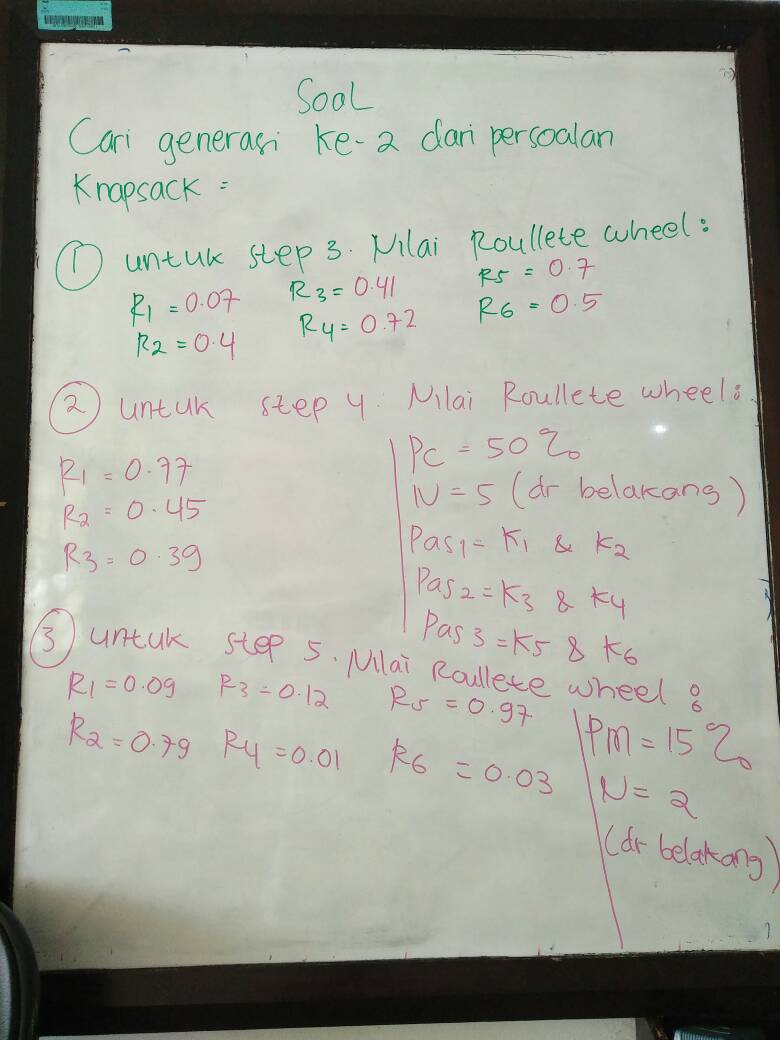 Soal
Cari generasi ke-2 dari persoalan
Knapsack =
① untuk step 3. Nilai Roullete wheel :
R1 = 0.07 R3 = 0.41 R5 = 0.7
R2 = 0.4 R4 = 0.72 R6 = 0.5
② untuk step 4. Nilai Roullete wheel :
R1 = 0.77
R2 = 0.45
R3 = 0.39
PC = 50 %
N = 5 (dr belakang)
Pas1 = K1 & K2
Pas2 = K3 & K4
Pas3 = K5 & K6
③ untuk step 5. Nilai Roullete wheel :
R1 = 0.09 R3 = 0.12 R5 = 0.97
R2 = 0.79 R4 = 0.01 R6 = 0.03
PM = 15 %
N = 2
(dr belakang)